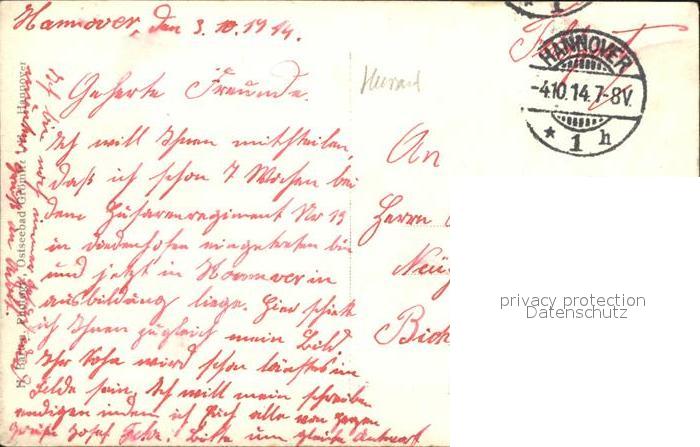 Hannover, den 3.10.1914.
Geherte Freunde.
Ich will Ihnen mittheilen,
daß ich schon 7 Wochen bei
dem Husarenregiment Nr 13
in Diedenhofen eingetreten bin
und jetzt in Hannover in
ausbildung liege. Hier schick
ich Ihnen zugleich mein Bild
Ihr Sohn wird schon längstes im
Felde sein, Ich will mein schreiben
endigen indem ich Euch alle von Herzen
grüße Josef. Bitte um gleiche Antwort
Ich bin noch immer
An
Herrn
Feldpost
HANNOVER
-4.10.14.7-8V.
* 1 h
* 1
Ostseebad Grömitz
Hannover
privacy protection
Datenschutz